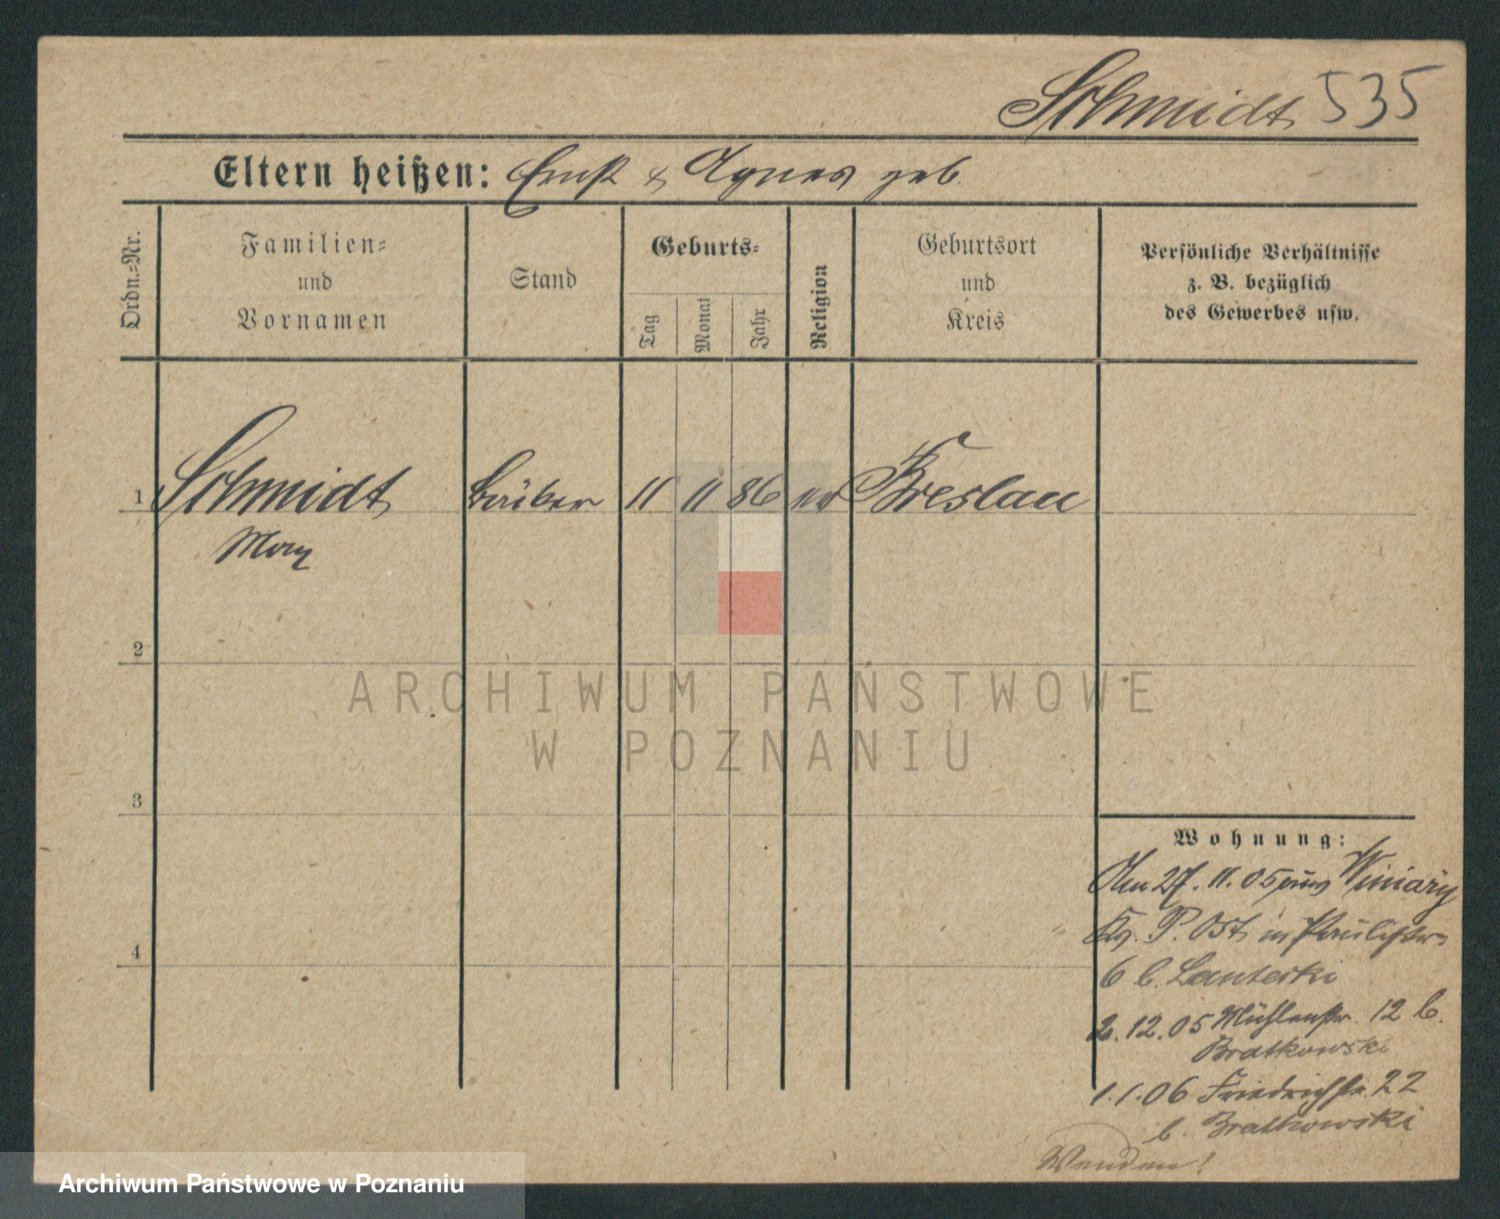 Schmidt 535
Eltern heißen: Ernst & Agnes geb.
Ordn.-Nr.
Familien-
und
Vornamen
Stand
Geburts-
Tag
Monat
Jahr
Religion
Geburtsort
und
Kreis
Persönliche Verhältnisse
z. B. bezüglich
des Gewerbes usw.
1 Schmidt 11 11 86 Breslau
Max
2
ARCHIWUM PAŃSTWOWE
W POZNANIU
3
4
Wohnung:
Am 27. 11. 05 aus Winiary
Kr. P. Ost in Paulistr.
6 b. Lauterki
2. 12. 05 Mühlenstr. 12 b.
Bratkowski
1. 1. 06 Friedrichstr. 22
b. Bratkowski
Wenden!
Archiwum Państwowe w Poznaniu